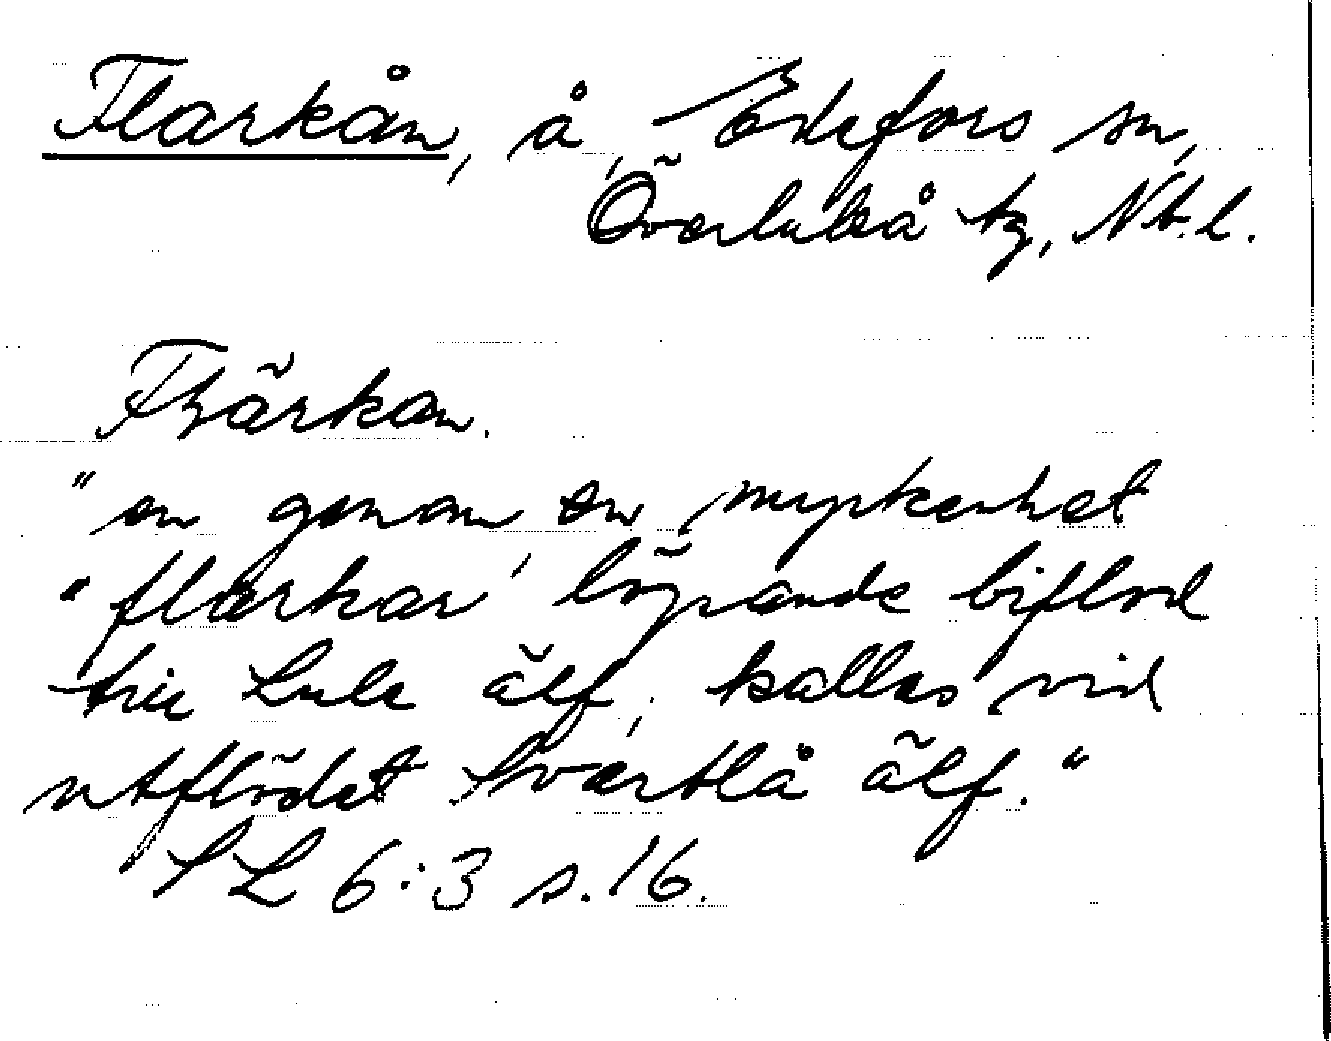 Flarkån, å, Edefors sn,
Överluleå tg, Nb.l.
Flärkan.
"en genom en myckenhet
"flarkar, löpande biflod
till Lule älf, kallas vid
utflödet Svartlå älf."
SL 6:3 s.16.